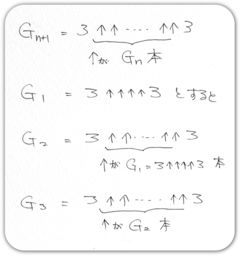 Gn+1 = 3 ↑↑‥‥↑↑ 3
↑が Gn 本
G1 = 3 ↑↑↑↑ 3 とすると
G2 = 3 ↑↑‥‥↑ 3
↑が G1=3↑↑↑↑3 本
G3 = 3 ↑↑‥‥↑↑ 3
↑が G2 本